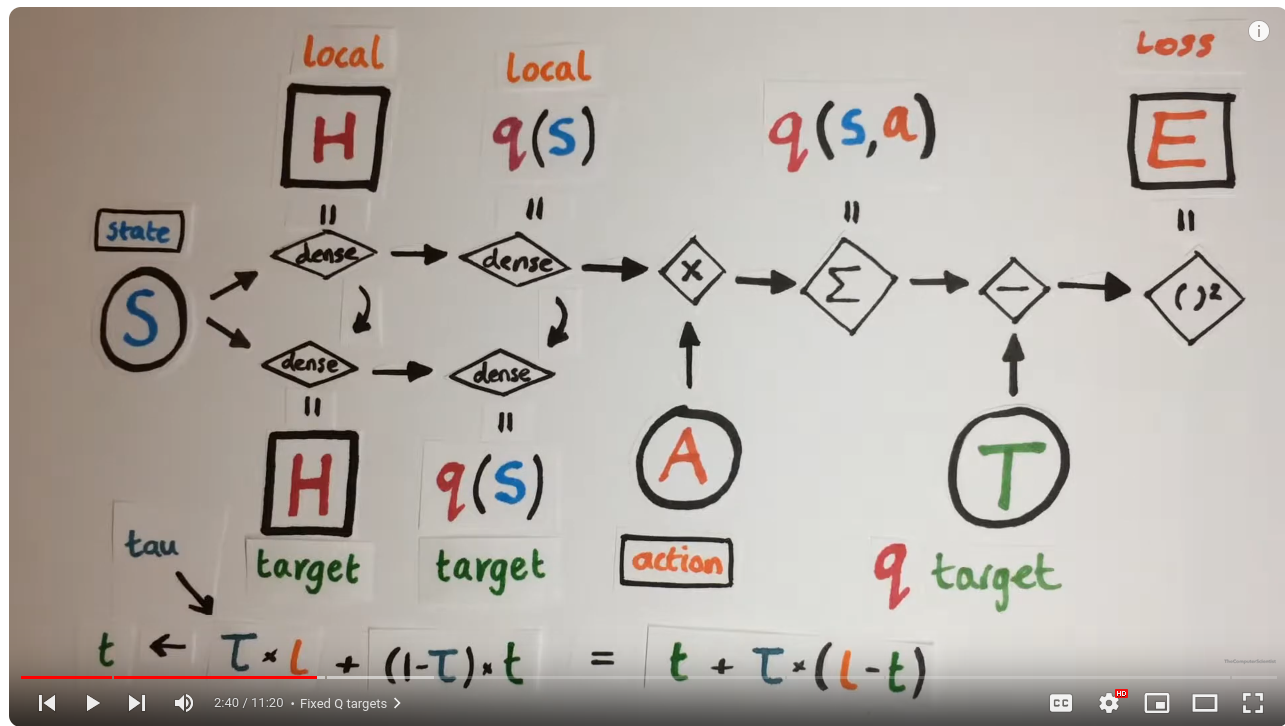 local
local
Loss
H
q(S)
q(s,a)
E
=
=
=
=
state
dense
dense
×
Σ
−
( )²
S
dense
dense
=
=
H
q(S)
A
T
tau
target
target
action
q target
t ← τ × l + (1-τ) × t = t + τ × (l - t)
2:40 / 11:20 • Fixed Q targets
CC
HD